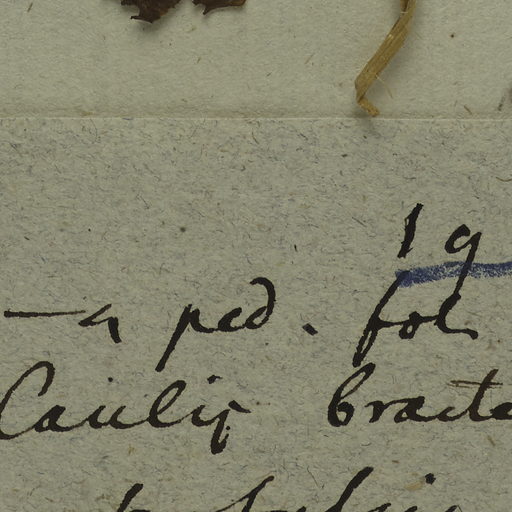 19
-4 ped. fol
Caulis bracte